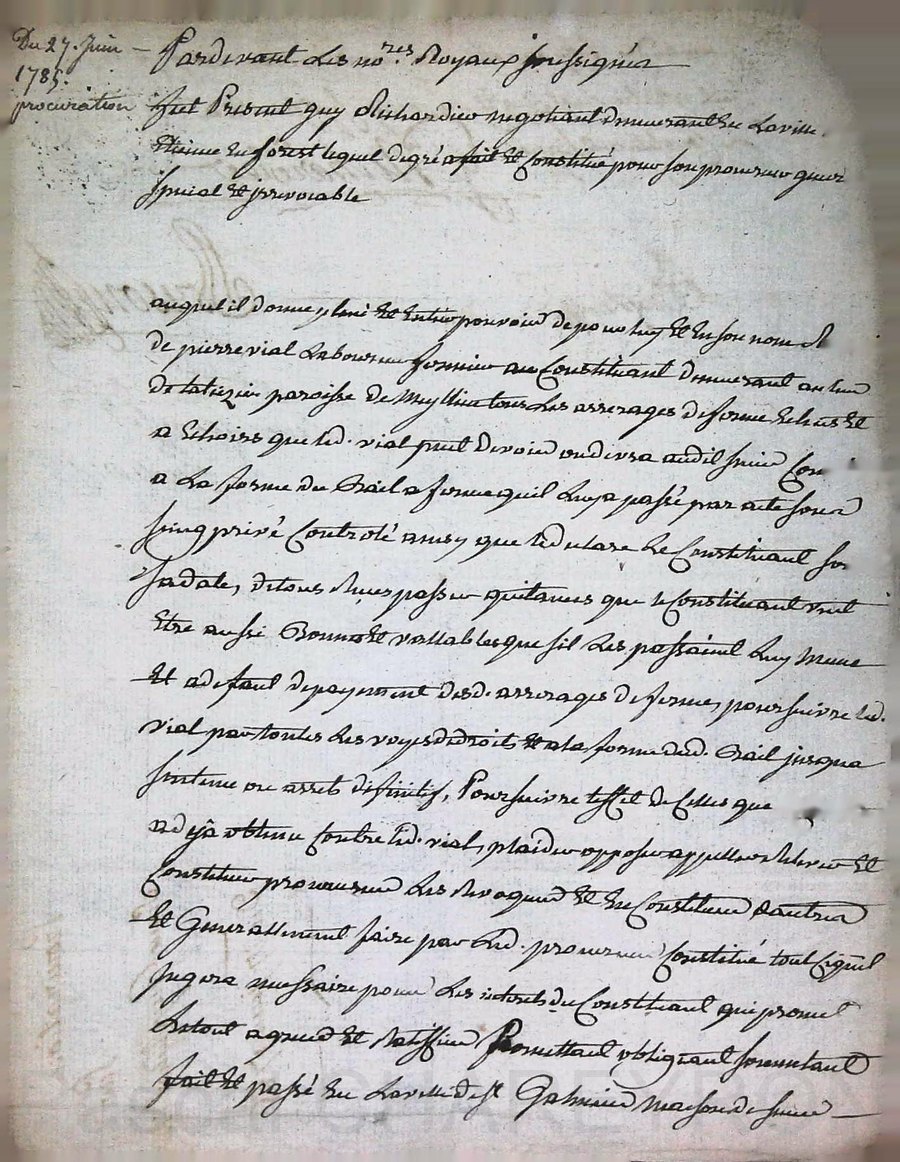 Du 27. Juin
1785.
procuration
Pardevant Les no.res Royaux soussignés
fut Present guy Richardier negotiant demeurant En La ville
Etienne En forest lequel de gré a fait Et Constitué pour son procureur gnral
special Et irrevocable
auquel il donne plein Et Entier pouvoir de pour luy Et En son nom
de pierre vial Laboureur fermier du Constituant demeurant au lieu
de paroisse de tous Les arrerages de ferme Echus Et
a Echoirs que led. vial peut devoir ou devra audit sieur Con
a La forme du Bail a ferme quil Luy a passé par acte sous
seing privé Controlé ainsy que le declare Le Constituant
sa date, de tous Reçus passer quitances que le Constituant veut
Etre aussi Bonnes Et vallables que sil Les passaient Luy meme
Et a defaut de payement desd. arrerages de ferme, poursuivre led.
vial par toutes Les voyes de droits Et a la forme dud. Bail jusqua
sentence ou arrets definitif, Poursuivre leffet de Celles que
a deja obtenu Contre led. vial, plaider opposer appeller Et
Constituer procureurs Les Revoquer Et En Constituer dautres
Et Generallement faire par led. procureur Constitué tout Ce quil
jugera necessaire pour Les interets du Constituant qui promet
Le tout agreer Et Ratiffier Promettant obligeant soumettant
fait Et passé En La ville de st Galmier maison de sieur